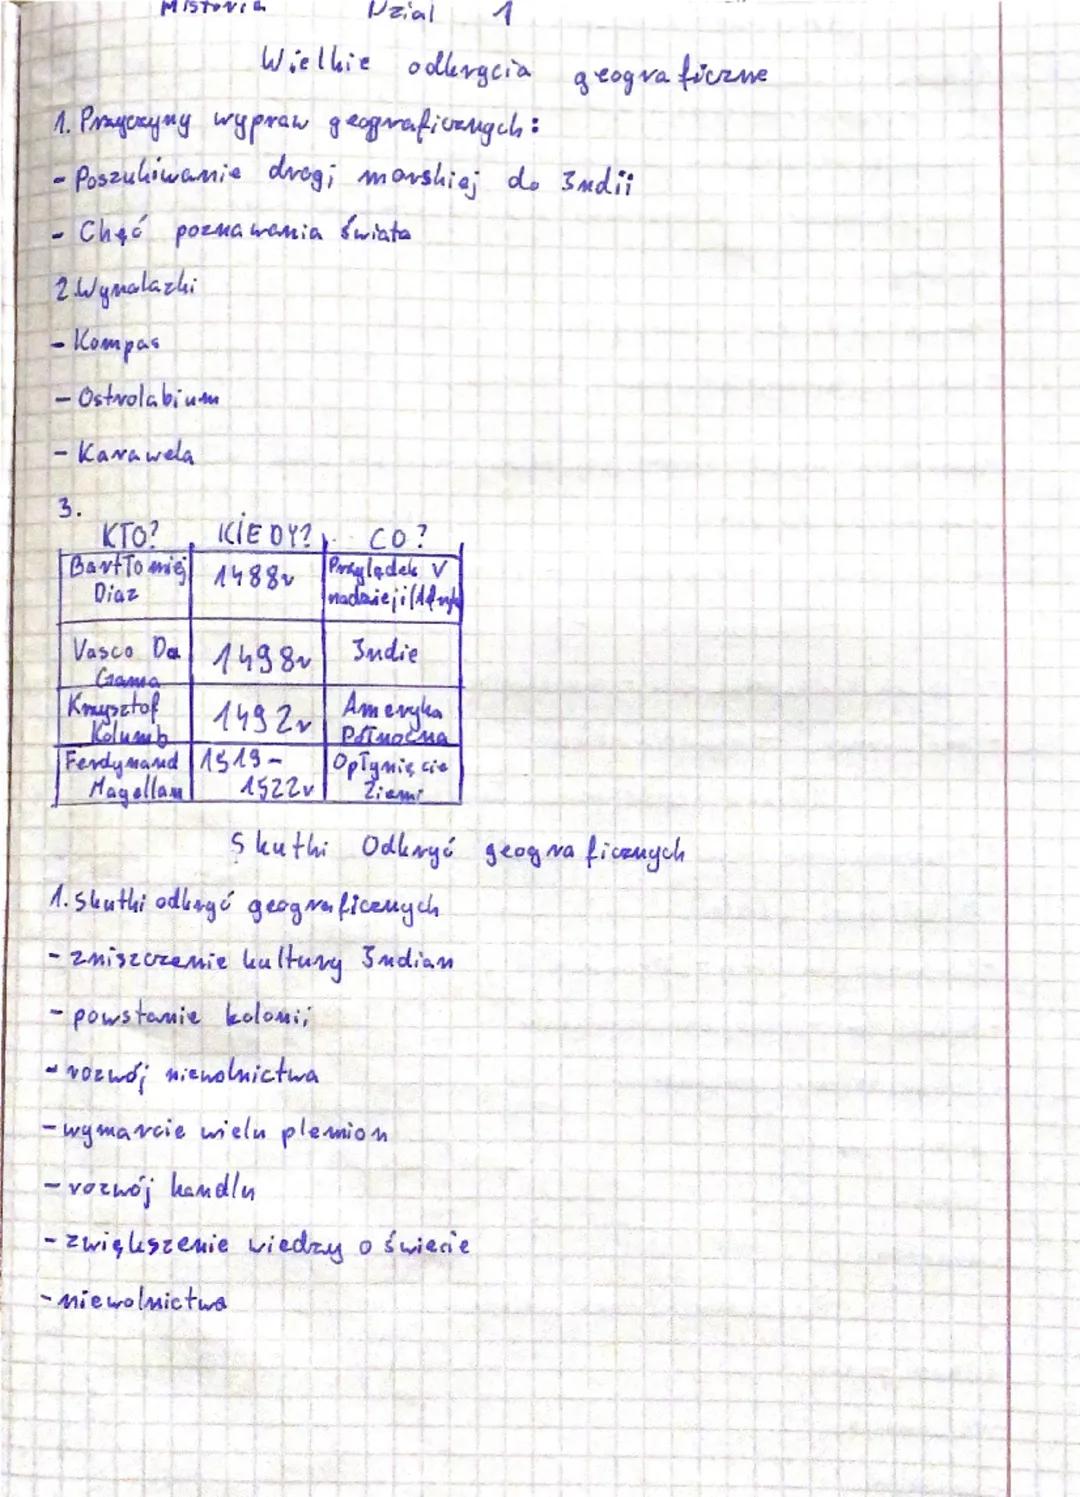 Historia Dział 1
Wielkie odkrycia geograficzne
1. Przyczyny wypraw geograficznych:
- Poszukiwanie drogi morskiej do Indii
- Chęć poznawania świata
2. Wynalazki
- Kompas
- Ostrolabium
- Karawela
3.
KTO? KIEDY? CO?
Bartłomiej Diaz 1488r Przylądek nadzieji
Vasco Da Gama 1498r Indie
Krzysztof Kolumb 1492r Ameryka Północna
Ferdynand Magellan 1519-1522r Opłynięcie Ziemi
Skutki Odkryć geograficznych
1. Skutki odkryć geograficznych
- zniszczenie kultury Indian
- powstanie kolonii
- rozwój niewolnictwa
- wymarcie wielu plemion
- rozwój handlu
- zwiększenie wiedzy o świecie
- niewolnictwo